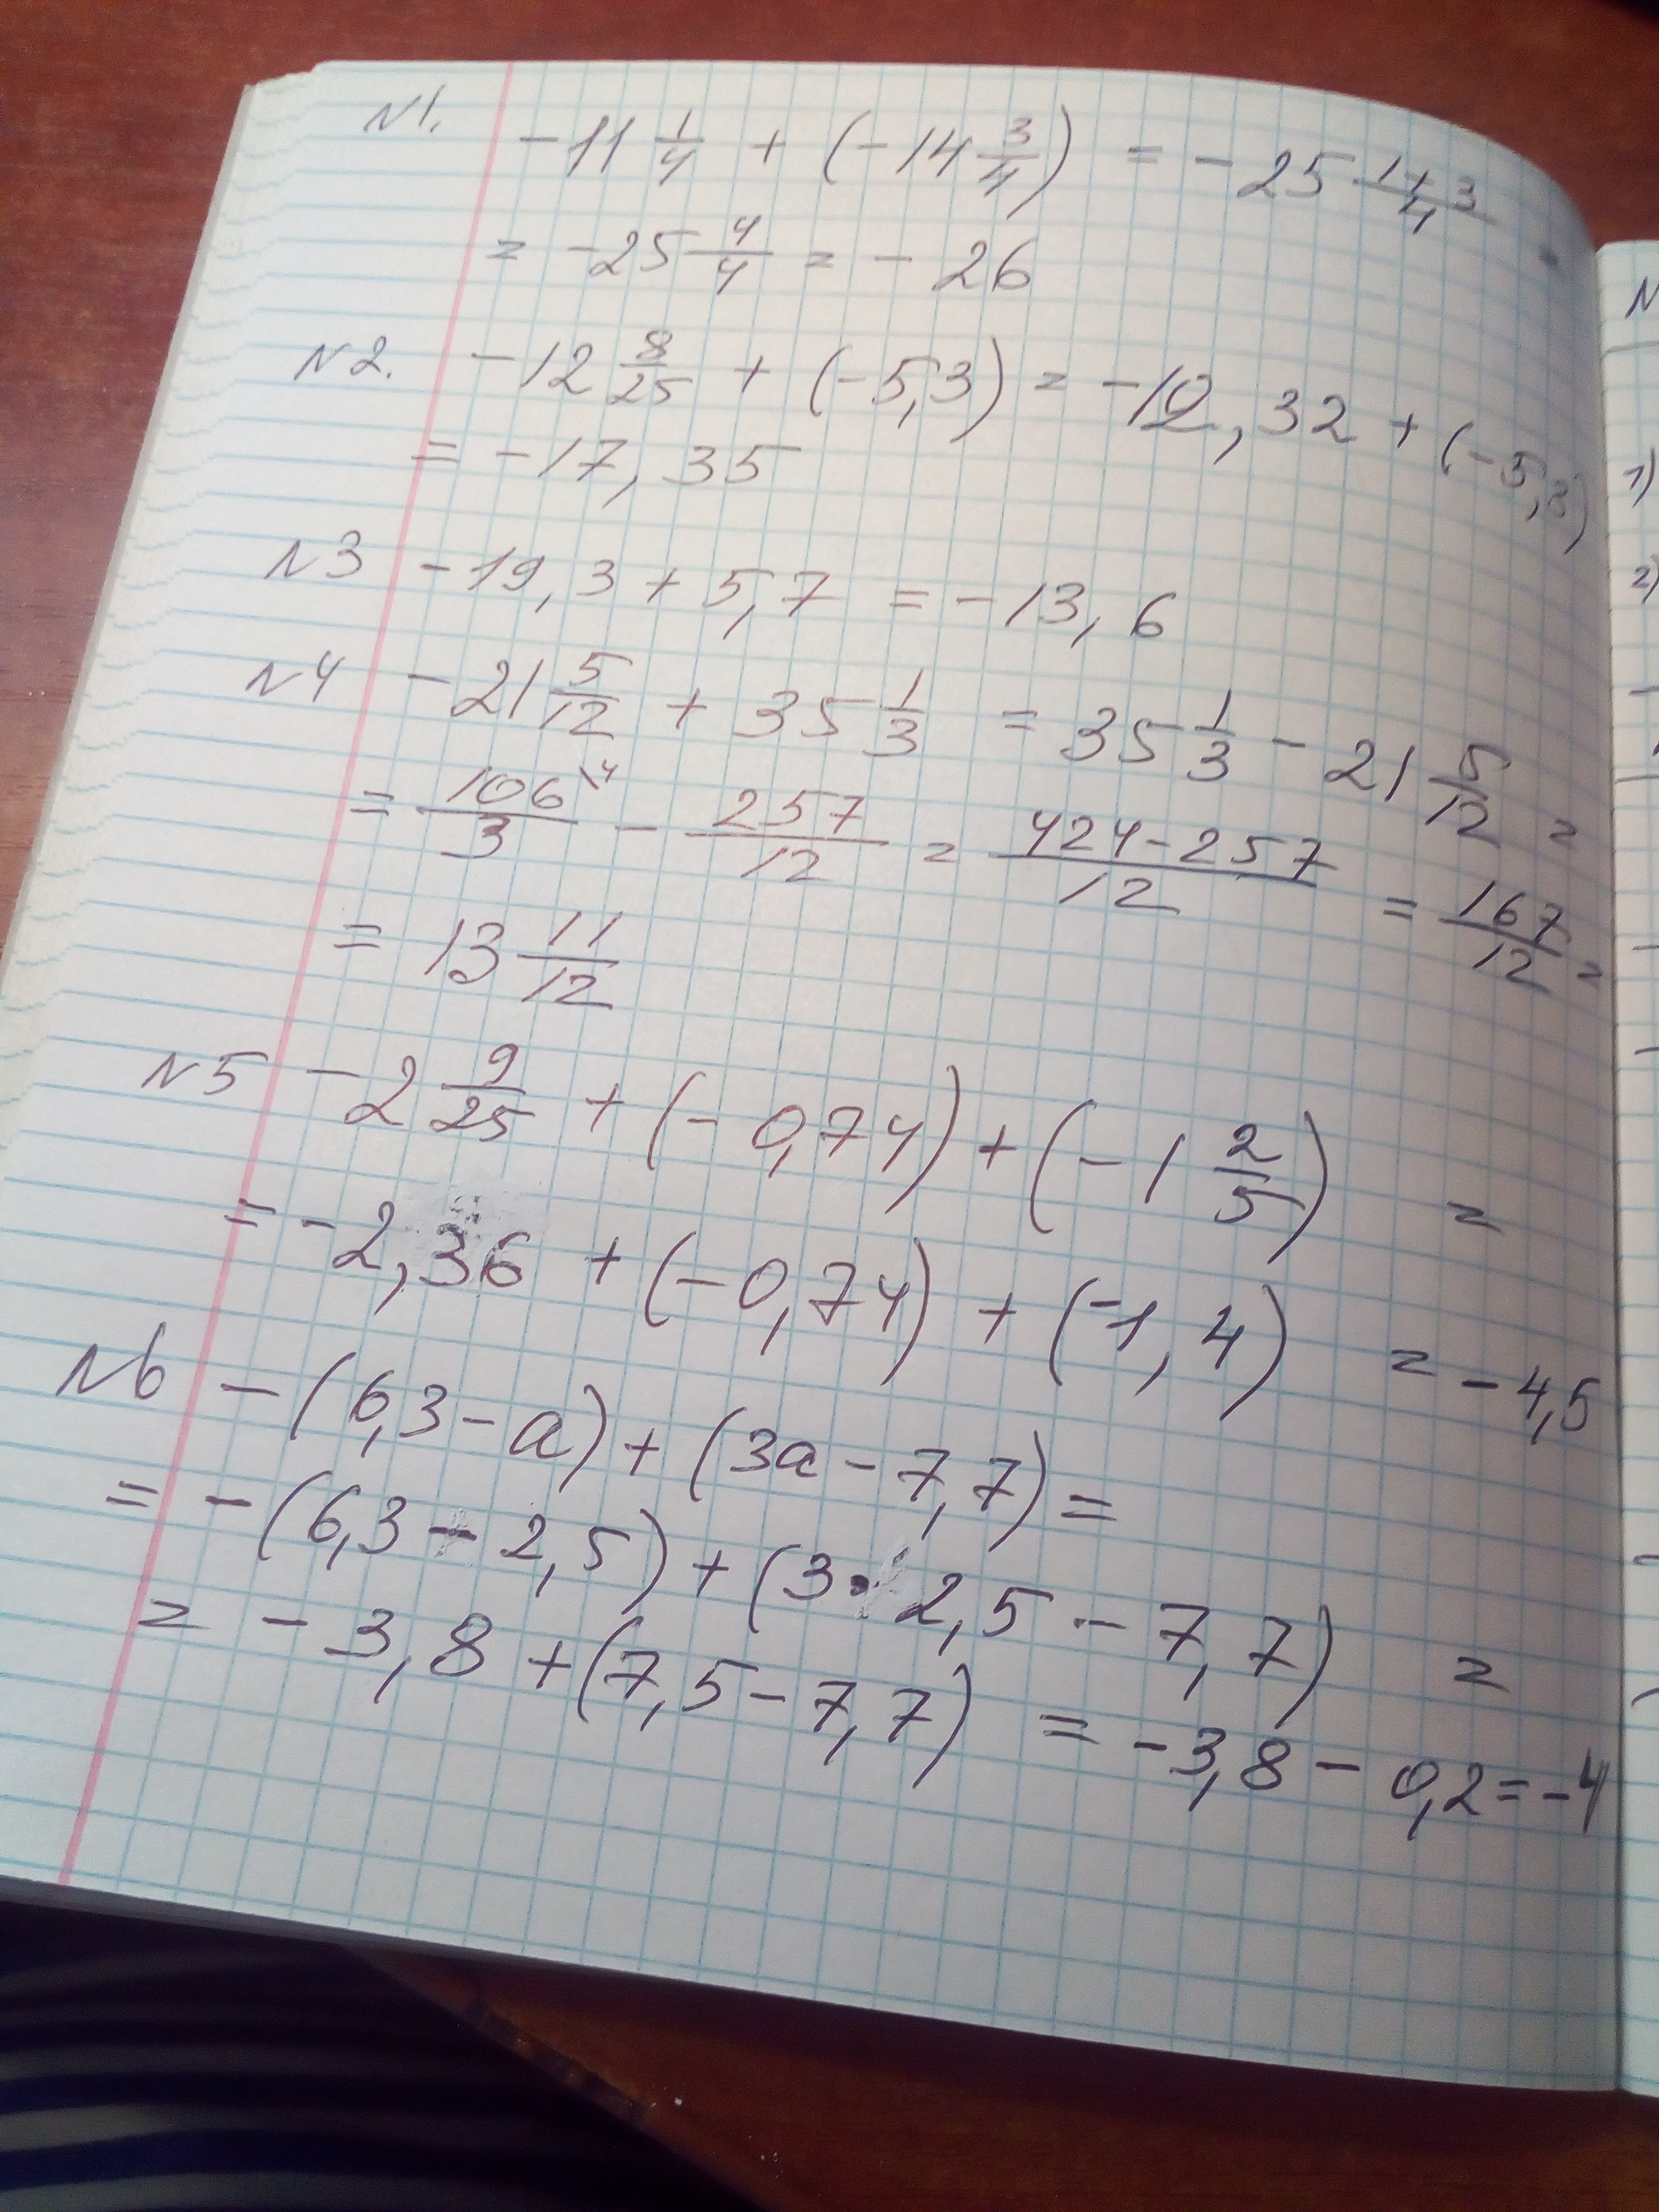 N1. -11 1/4 + (-14 3/4) = -25 1+3/4
= -25 4/4 = -26
N2. -12 8/25 + (-5,3) = -12,32 + (-5,3)
= -17,35
N3 -19,3 + 5,7 = -13,6
N4 -21 5/12 + 35 1/3 = 35 1/3 - 21 5/12 =
= 106\4/3 - 257/12 = 424-257/12 = 167/12 =
= 13 11/12
N5 -2 9/25 + (-0,74) + (-1 2/5) =
= -2,36 + (-0,74) + (-1,4) = -4,5
N6 -(6,3-a) + (3a-7,7) =
= -(6,3 - 2,5) + (3·2,5 - 7,7) =
= -3,8 + (7,5 - 7,7) = -3,8 - 0,2 = -4
N
1)
2)